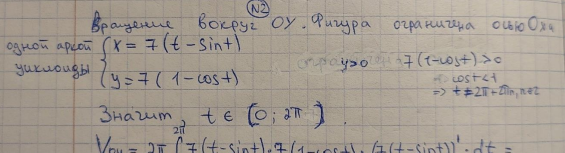 №2
Вращение вокруг OY. Фигура ограничена осью Ox и
одной аркой циклоиды { x = 7(t - sint)
y = 7(1 - cost)
y>0 7(1-cost)>0
cost<1
=> t ≠ 2π + 2πn, n∈Z
Значит, t ∈ [0; 2π].
V = 2π ∫ 7(t-sint)·7(1-cost)·(7(t-sint))' · dt =
2π